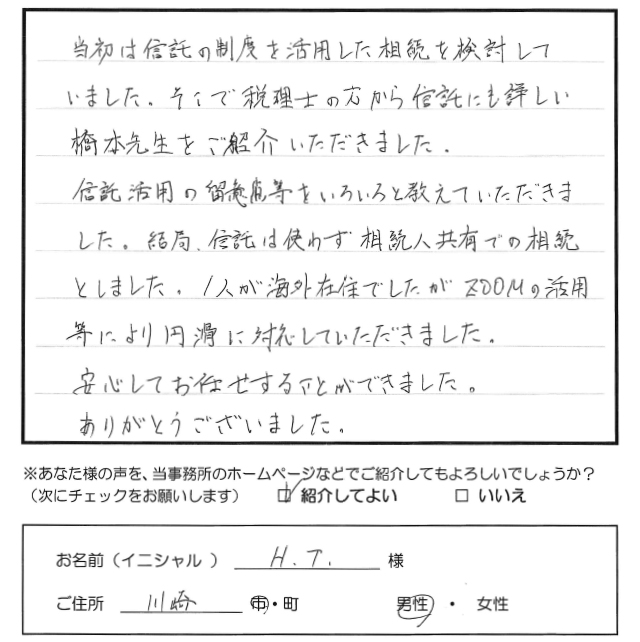 当初は信託の制度を活用した相続を検討して
いました。そこで税理士の方から信託にも詳しい
橋本先生をご紹介いただきました。
信託活用の留意点等をいろいろと教えていただきま
した。結局、信託は使わず相続人共有での相続
としました。1人が海外在住でしたがZOOMの活用
等により円滑に対応していただきました。
安心してお任せすることができました。
ありがとうございました。
※あなた様の声を、当事務所のホームページなどでご紹介してもよろしいでしょうか?
(次にチェックをお願いします) ☑ 紹介してよい □ いいえ
お名前(イニシャル ) H.T. 様
ご住所 川崎 市・町 男性 ・ 女性